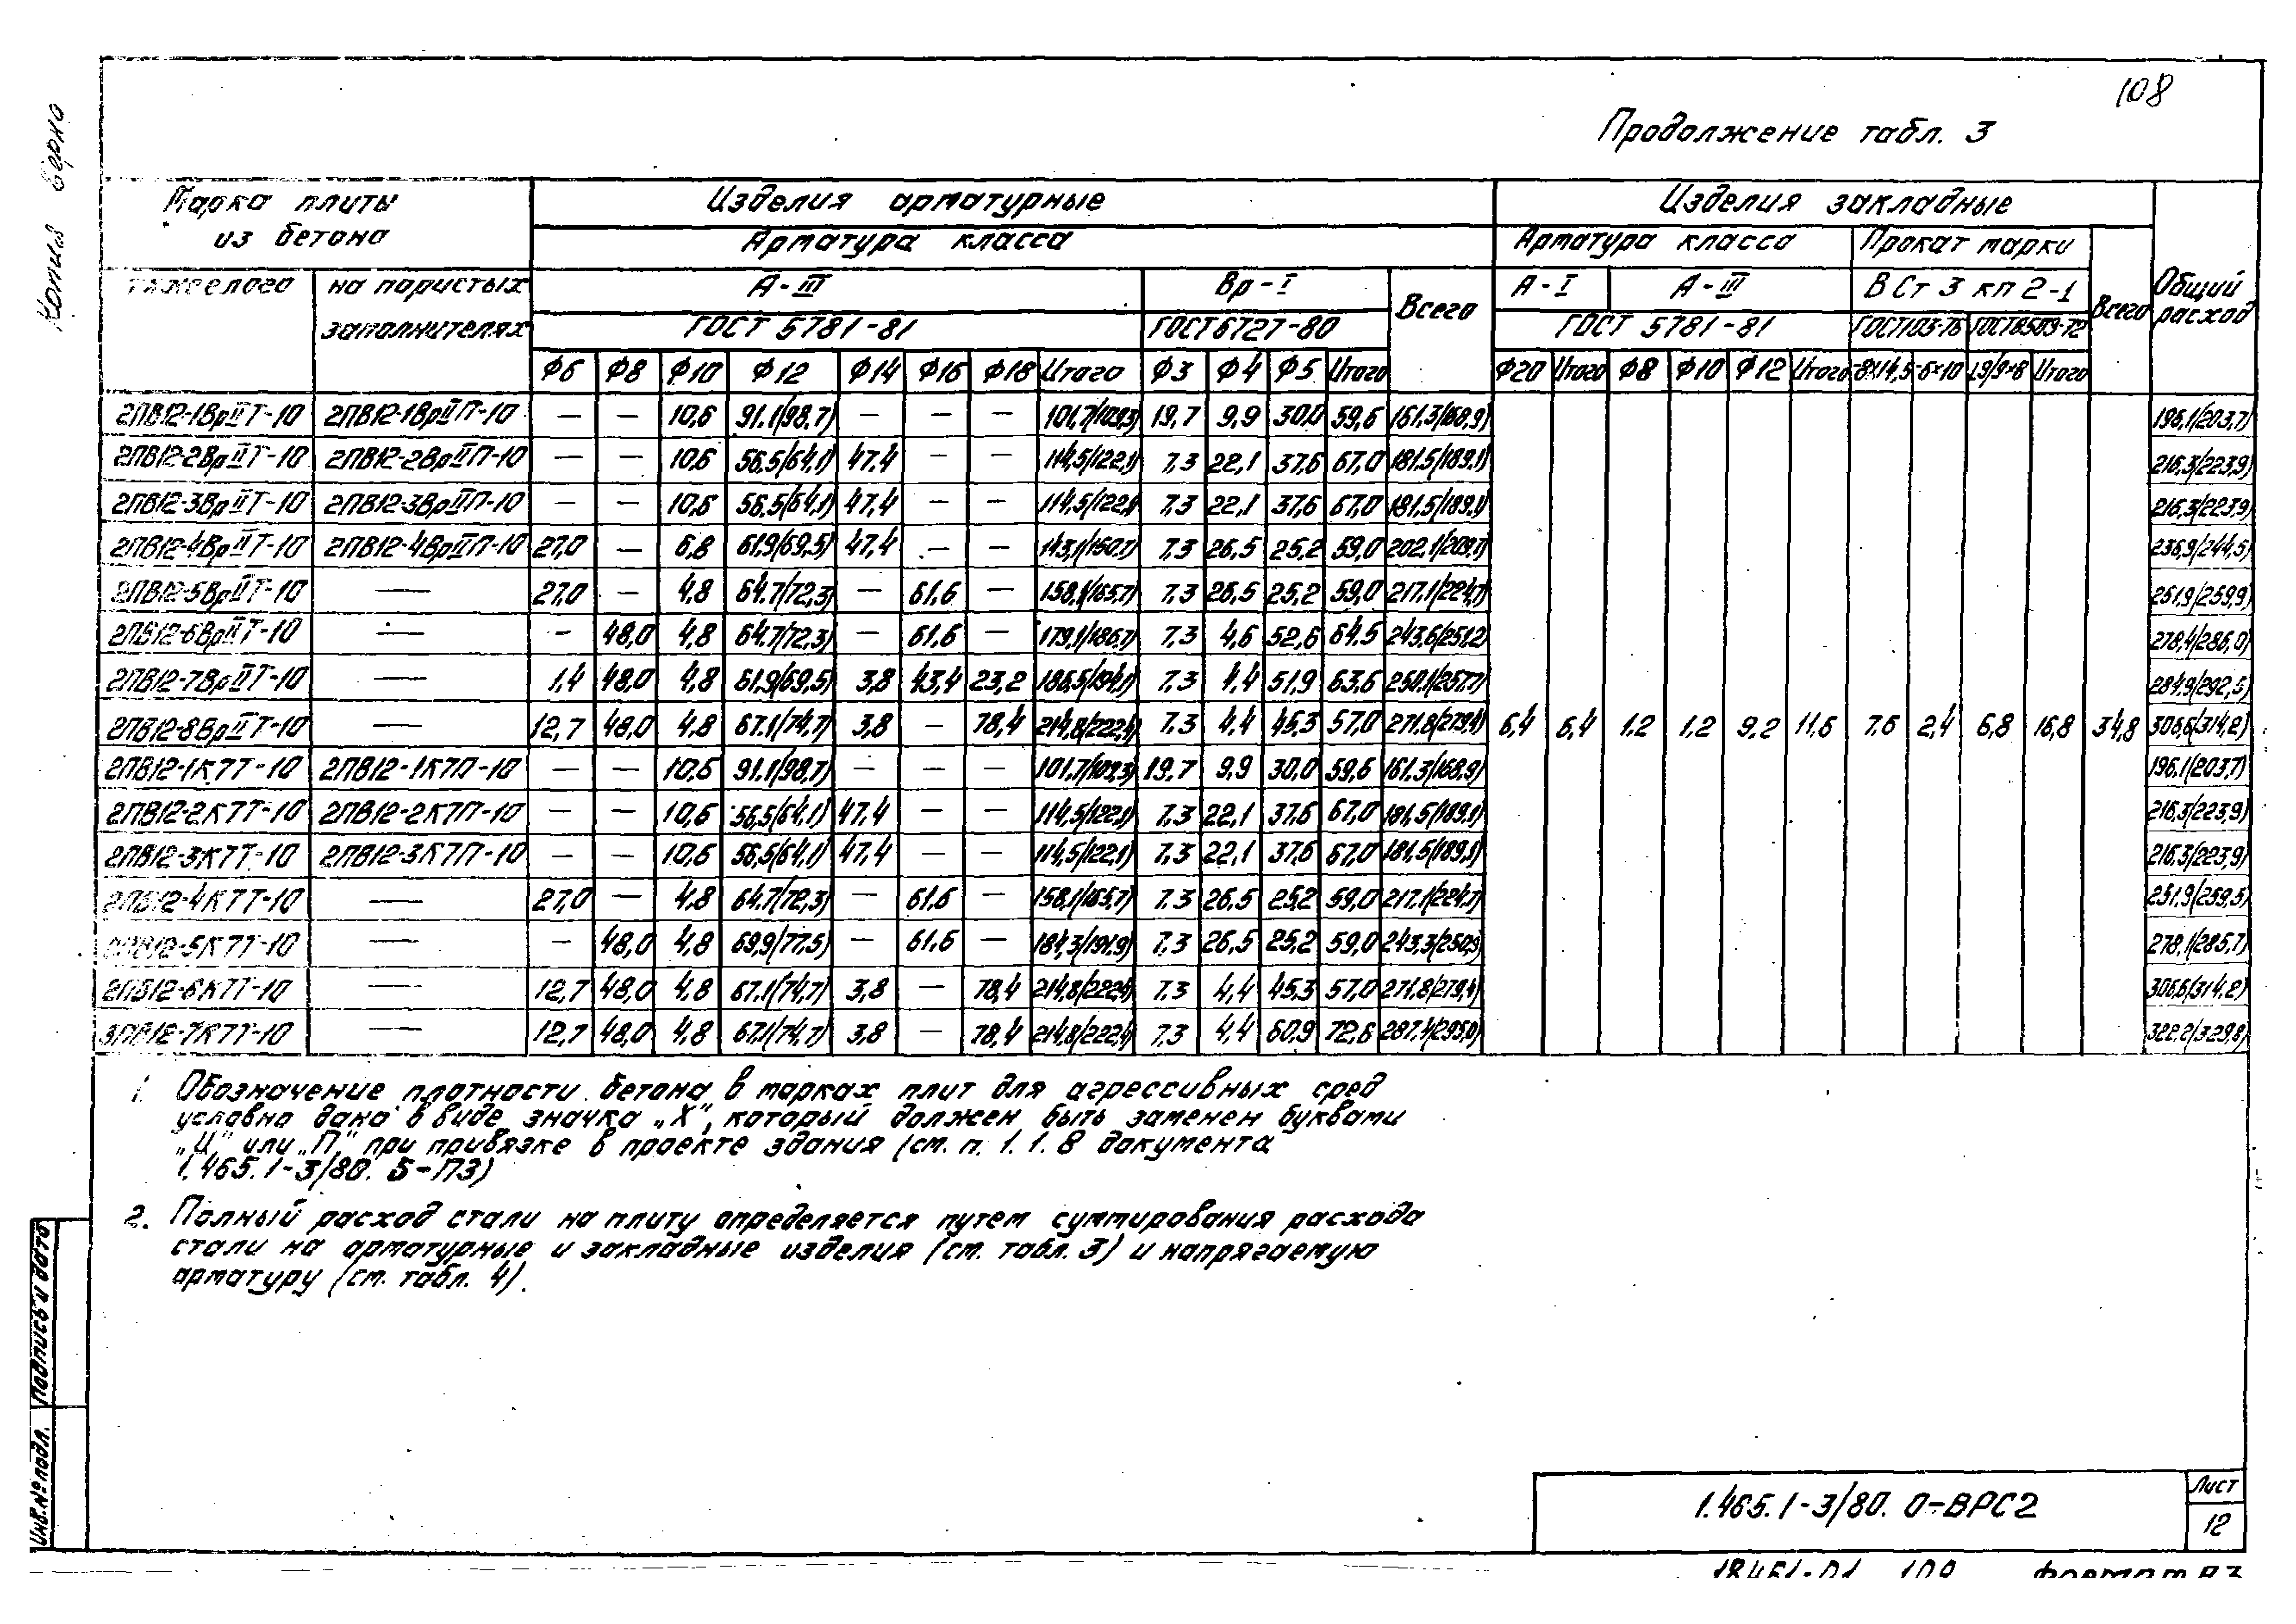 108
Копия верна
Продолжение табл. 3
Марка плиты из бетона
Изделия арматурные
Изделия закладные
Общий расход
Арматура класса
Арматура класса
Прокат марки
Всего
тяжелого
на пористых заполнителях
А-III
Вр-I
Всего
А-I
А-III
ВСт 3 кп 2-1
ГОСТ 5781-81
ГОСТ 6727-80
ГОСТ 5781-81
ГОСТ103-76
ГОСТ8509-72
Ф6 Ф8 Ф10 Ф12 Ф14 Ф16 Ф18 Итого Ф3 Ф4 Ф5 Итого Ф20 Итого Ф8 Ф10 Ф12 Итого -8×14,5 -6×10 Итого
2ПВ12-1ВрIIТ-10 2ПВ12-1ВрIIП-10 — — 10,6 91.1(98,7) — — — 101,7(109,3) 19,7 9,9 30,0 59,6 161.3(168,9) 196,1(203,7)
2ПВ12-2ВрIIТ-10 2ПВ12-2ВрIIП-10 — — 10,6 56,5(64,1) 47.4 — — 114,5(122,1) 7,3 22,1 37,6 67,0 181,5(189,1) 216,3(223,9)
2ПВ12-3ВрIIТ-10 2ПВ12-3ВрIIП-10 — — 10,6 56,5(64,1) 47.4 — — 114,5(122,1) 7,3 22,1 37,6 67,0 181,5(189,1) 216,3(223,9)
2ПВ12-4ВрIIТ-10 2ПВ12-4ВрIIП-10 27,0 — 6,8 61,9(69,5) 47,4 — — 143,1(150,7) 7,3 26,5 25,2 59,0 202,1(209,7) 236,9(244,5)
2ПВ12-5ВрIIТ-10 — 27,0 — 4,8 64.7(72,3) — 61,6 — 158,1(165,7) 7,3 26,5 25,2 59,0 217.1(224,7) 251,9(259,9)
2ПВ12-6ВрIIТ-10 — — 48,0 4,8 64.7(72,3) — 61,6 — 179,1(186,7) 7,3 4,6 52,6 64,5 243,6(251,2) 278,4(286,0)
2ПВ12-7ВрIIТ-10 — 1,4 48,0 4,8 61,9(69,5) 3,8 43,4 23,2 186,5(194,1) 7,3 4,4 51,9 63,6 250,1(257,7) 284,9(292,5)
2ПВ12-8ВрIIТ-10 — 12,7 48,0 4,8 67.1(74,7) 3,8 — 78,4 214,8(222,4) 7,3 4,4 45,3 57,0 271,8(279,4) 6,4 6,4 1,2 1,2 9,2 11,6 7,6 2,4 6,8 16,8 34,8 306,6(314,2)
2ПВ12-1К7Т-10 2ПВ12-1К7П-10 — — 10,6 91.1(98,7) — — — 101,7(109,3) 19,7 9,9 30,0 59,6 161,3(168,9) 196,1(203,7)
2ПВ12-2К7Т-10 2ПВ12-2К7П-10 — — 10,6 56,5(64,1) 47,4 — — 114,5(122,1) 7,3 22,1 37,6 67,0 181,5(189,1) 216,3(223,9)
2ПВ12-3К7Т-10 2ПВ12-3К7П-10 — — 10,6 56,5(64,1) 47,4 — — 114,5(122,1) 7,3 22,1 37,6 67,0 181,5(189,1) 216,3(223,9)
2ПВ12-4К7Т-10 — 27,0 — 4,8 64.7(72,3) — 61,6 — 158,1(165,7) 7,3 26,5 25,2 59,0 217,1(224,7) 251,9(259,5)
2ПВ12-5К7Т-10 — — 48,0 4,8 69,9(77,5) — 61,6 — 184,3(191,9) 7,3 26,5 25,2 59,0 243,3(250,9) 278,1(285,7)
2ПВ12-6К7Т-10 — 12,7 48,0 4,8 67.1(74,7) 3,8 — 78,4 214,8(222,4) 7,3 4,4 45,3 57,0 271,8(279,4) 306,6(314,2)
3ПВ12-7К7Т-10 — 12,7 48,0 4,8 67,1(74,7) 3,8 — 78,4 214,8(222,4) 7,3 4,4 60,9 72,6 287.4(295,0) 322.2(329,8)
1. Обозначение плотности бетона в марках плит для агрессивных сред
условно дано в виде значка „Х", который должен быть заменен буквами
„Ц" или „П" при привязке в проекте здания (см. п. 1. 1. 8 документа
1.465.1-3/80. Б-ПЗ)
2. Полный расход стали на плиту определяется путем суммирования расхода
стали на арматурные и закладные изделия (см. табл. 3) и напрягаемую
арматуру (см. табл. 4).
Подпись и дата
Инв.№подл.
1.465.1-3/80. 0-ВРС2
Лист
12
18451-01 109 Формат А3